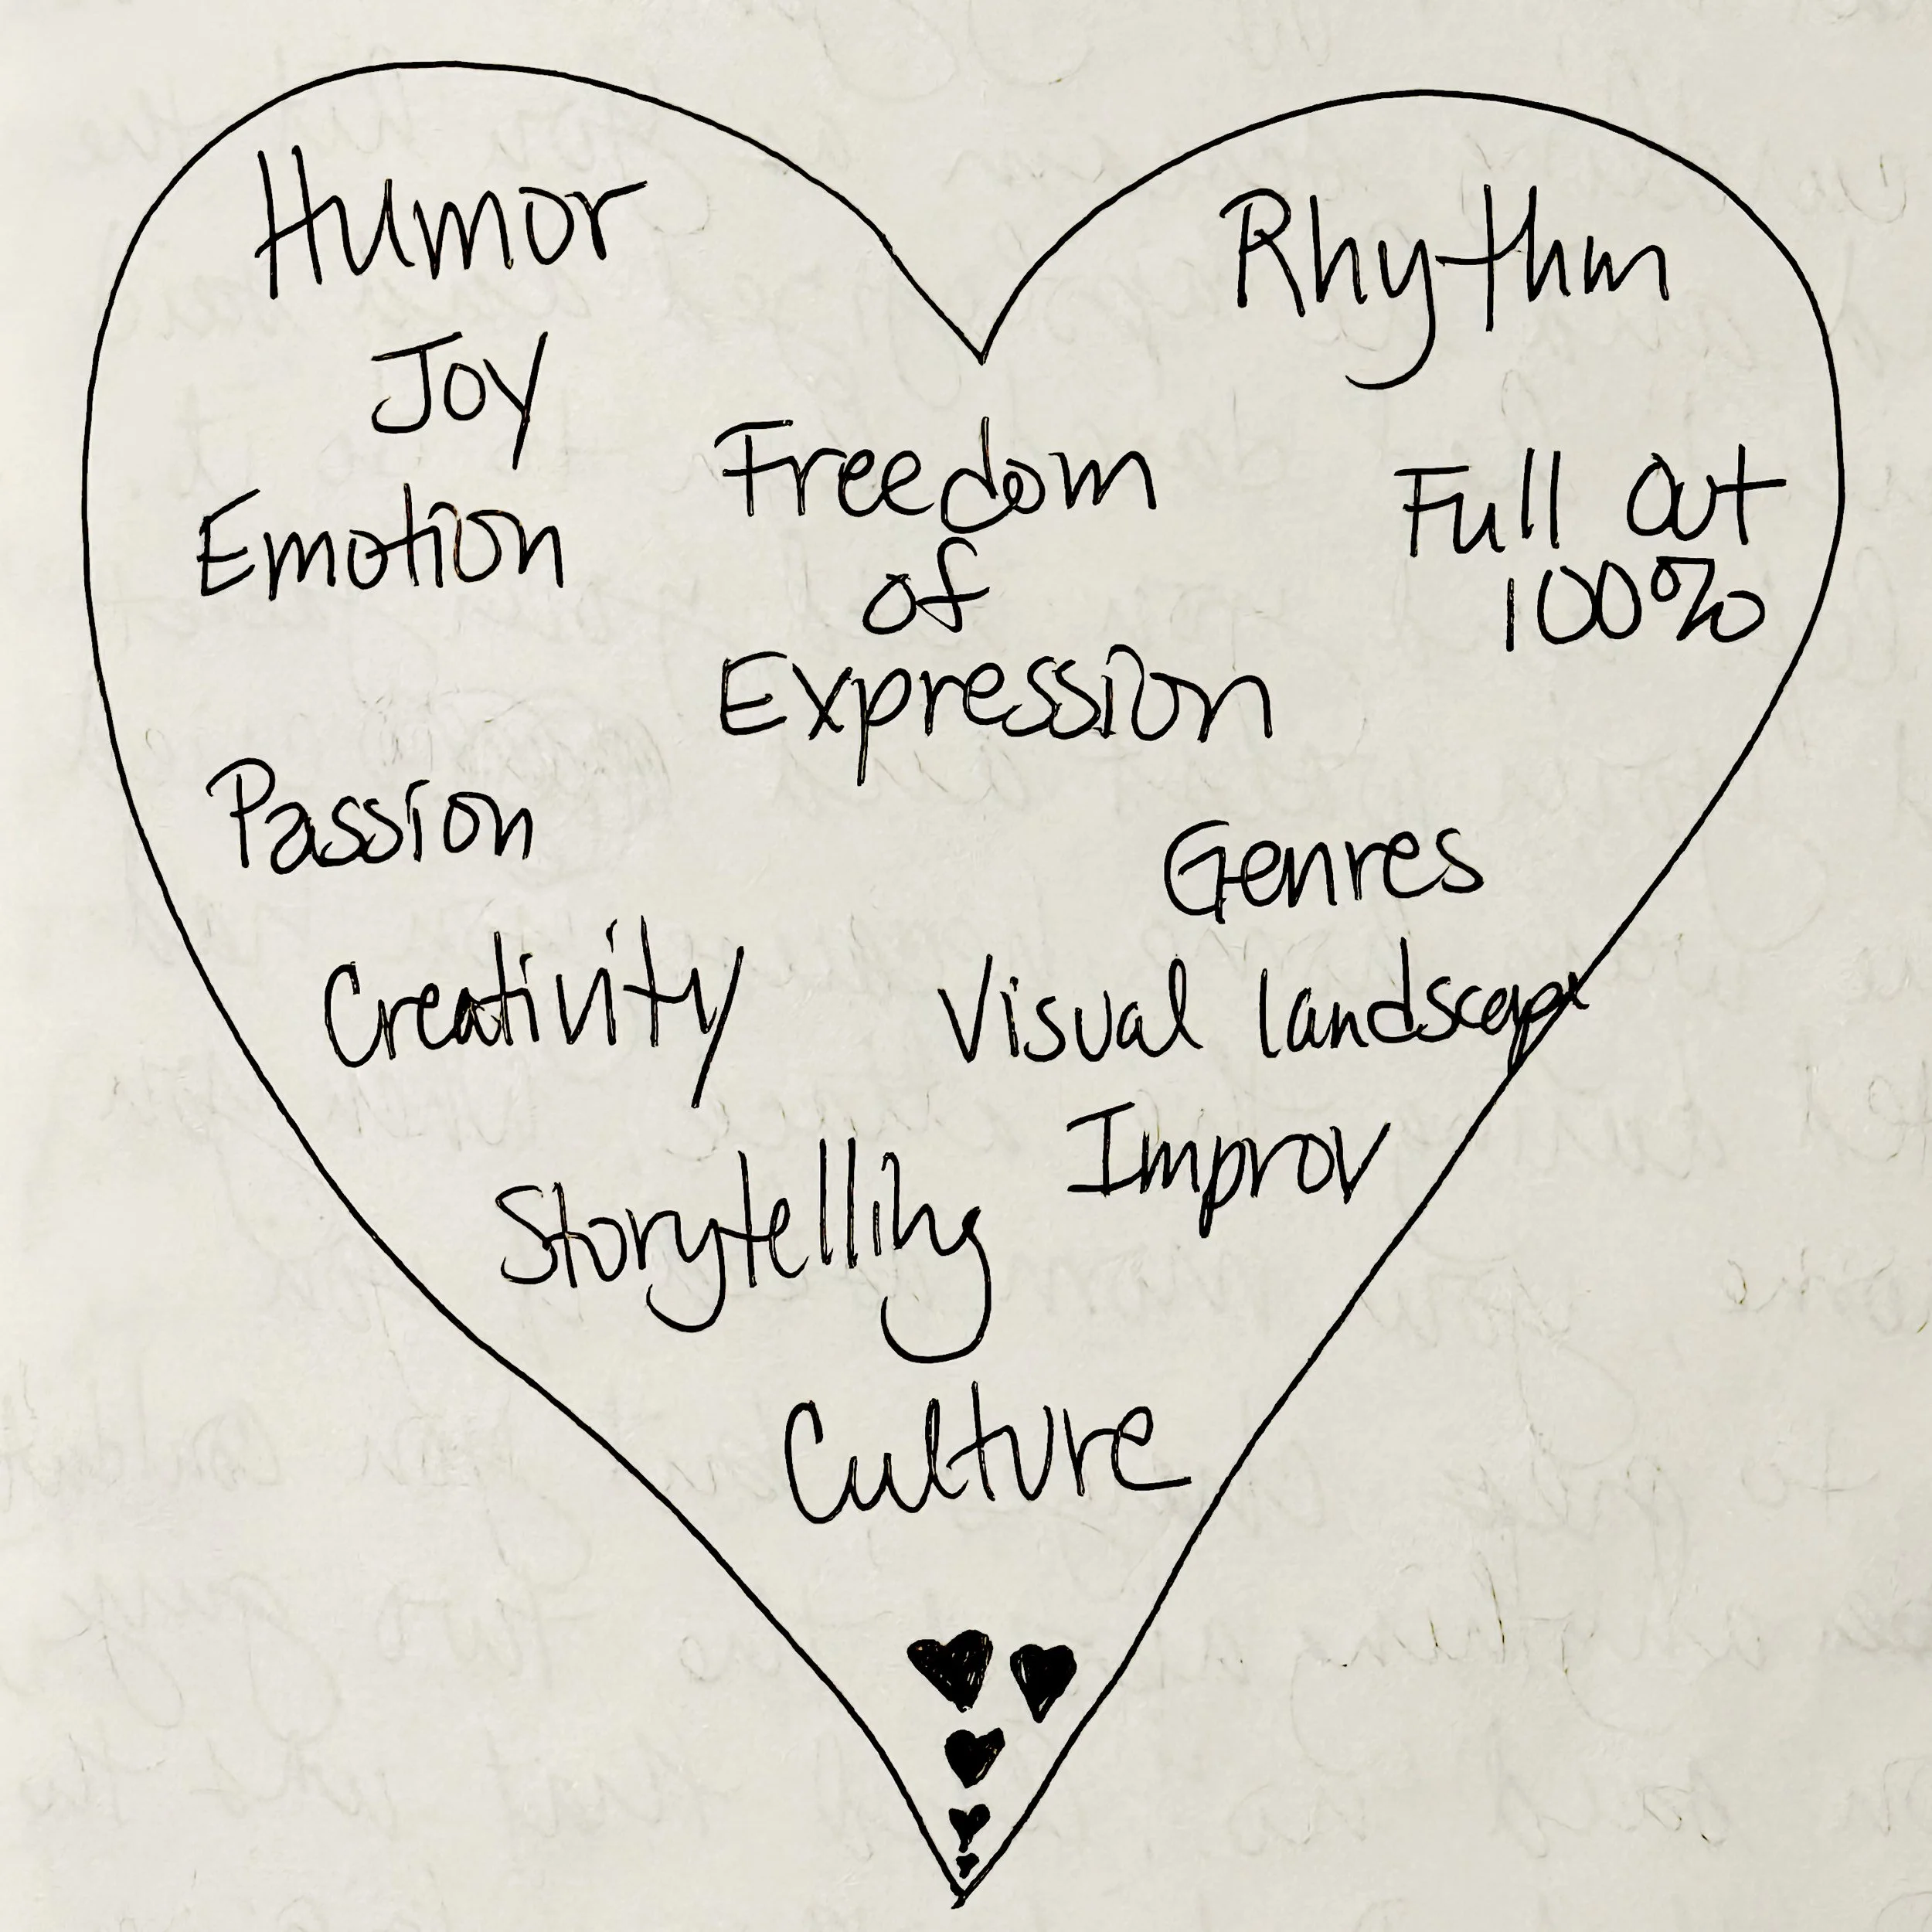 Humor
Rhythm
Joy
Freedom
of
Expression
Full Out
100%
Emotion
Passion
Genres
Creativity
Visual landscape
Improv
Storytelling
Culture